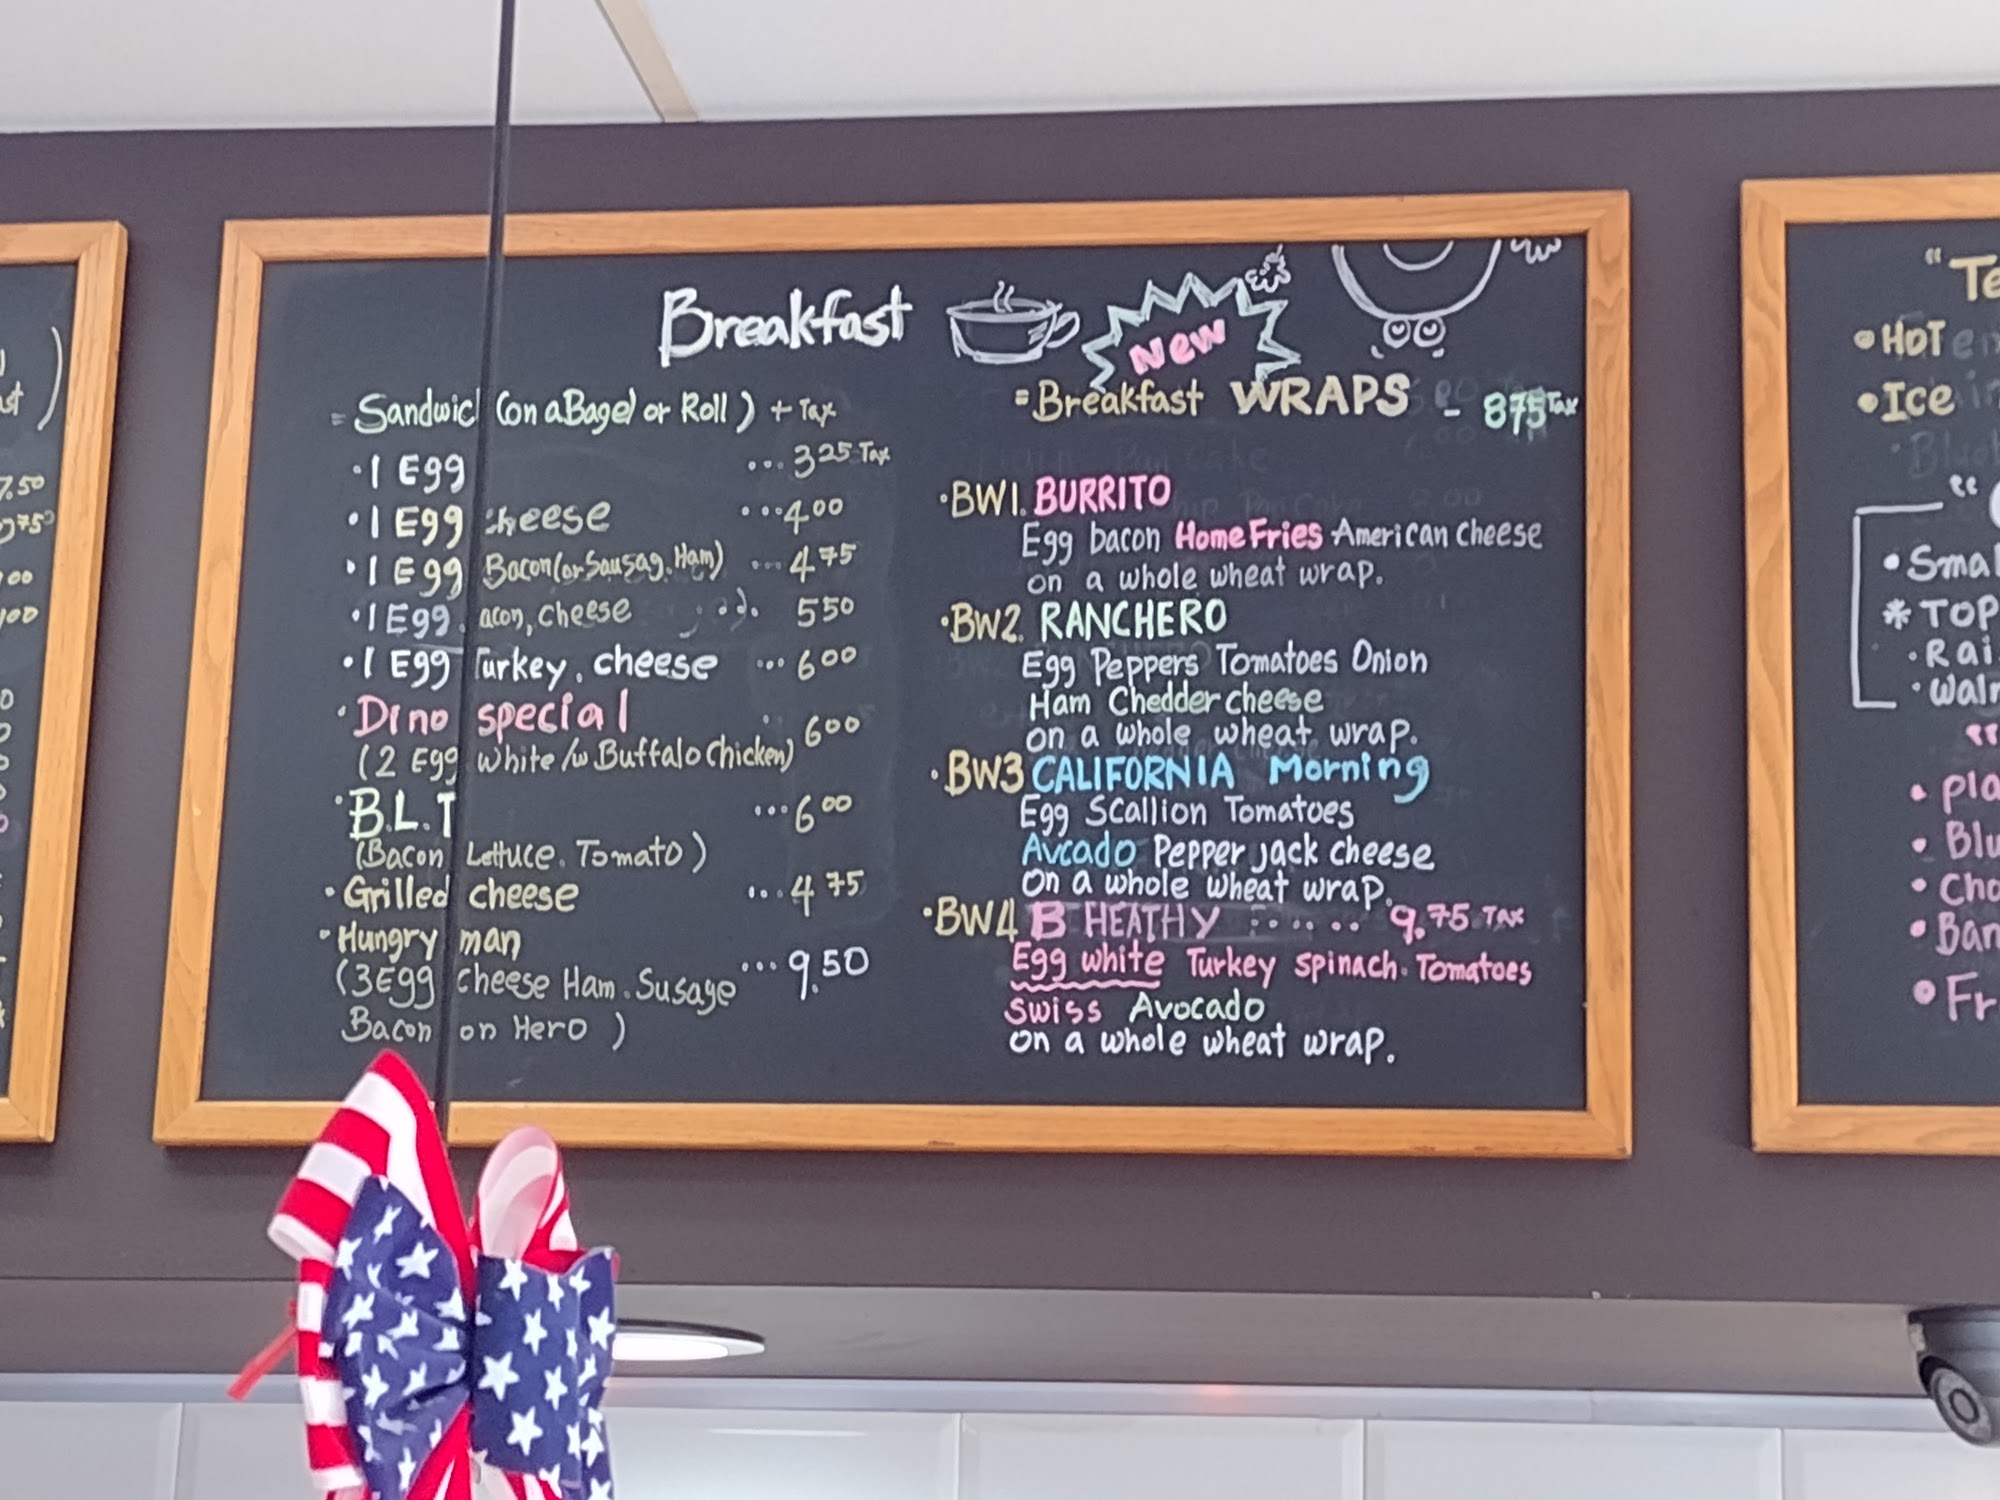 7.50
Breakfast
New
= Sandwic (on a Bagel or Roll) + Tax
· 1 Egg ... 3 25 Tax
· 1 Egg cheese ... 4 00
· 1 Egg Bacon (or Sausag, Ham) ... 4 75
· 1 Egg. acon, cheese 5 50
· 1 Egg Turkey, cheese ... 6 00
· Dino special 6 00
(2 Egg White /w Buffalo Chicken)
· B.L.T ... 6 00
(Bacon Lettuce. Tomato)
· Grilled cheese ... 4 75
· Hungry man
(3 Egg cheese Ham. Susage ... 9.50
Bacon on Hero )
= Breakfast WRAPS - 8 75 Tax
· BW1. BURRITO
Egg bacon Home Fries American cheese
on a whole wheat wrap.
· BW2. RANCHERO
Egg Peppers Tomatoes Onion
Ham Chedder cheese
on a whole wheat wrap.
· BW3 CALIFORNIA Morning
Egg Scallion Tomatoes
Avcado Pepper jack cheese
on a whole wheat wrap.
· BW4 B HEATHY ...... 9.75 TAX
Egg white Turkey spinach. Tomatoes
swiss Avocado
on a whole wheat wrap.
"Te
• HOT
• Ice
• Smal
* TOP
· Rai
· Waln
• pla
• Blu
• Cho
• Ban
• Fr